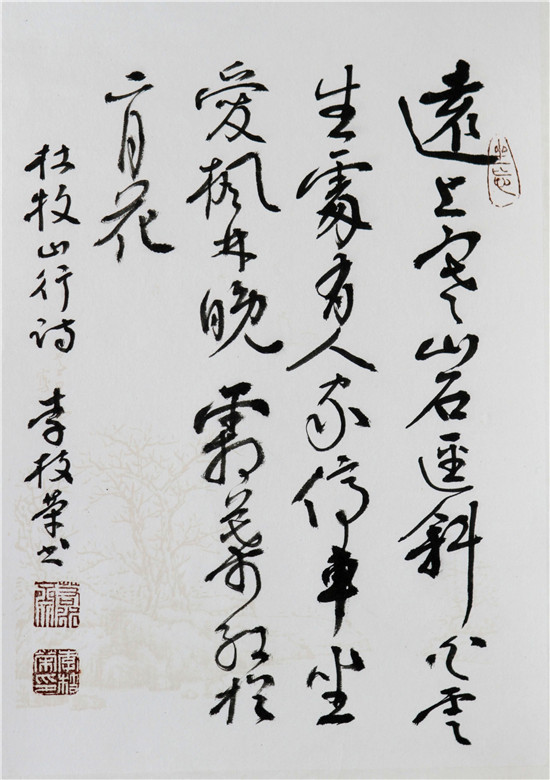 遠上寒山石逕斜白雲
生處有人家停車坐
愛楓林晚霜葉紅於
二月花
杜牧山行诗 李枝荣书
坐忘